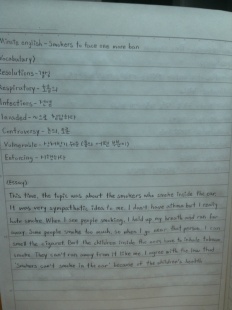 Minute english - Smokers to have one more ban
(Vocabulary)
Resolutions - 결심
Respiratory - 호흡의
Infections - 감염
Controversy - 논쟁, 논란
Vulnerable -
Enforcing -
(Essay)
This time, the topic was about the smokers who smoke inside the car.
It was very sympathetic idea to me. I don't have asthma but I really
hate smoke. When I see people smoking, I hold up my breath and run far
away. Some people smoke too much, so when I go near that person, I can
smell the cigarett. But the children inside the cars have to inhale tobacco
smoke. They can't run away from it like me. I agree with the law that
"Smokers can't smoke in the car" because of the children's health.